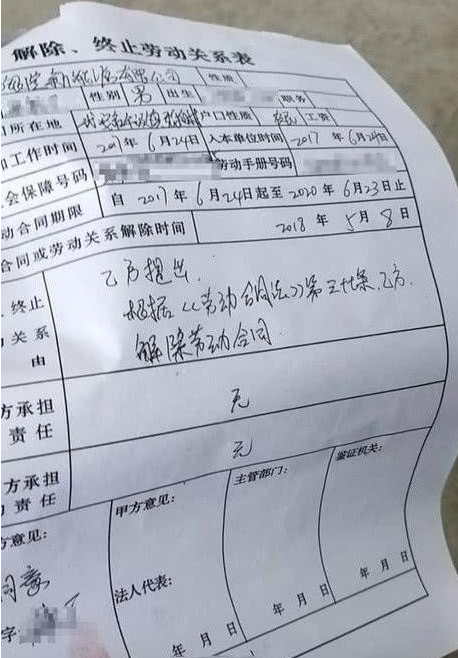 解除、终止劳动关系表
有限公司 性质
性别 男 出生 职务
所在地 户口性质 工资
工作时间 2017年6月24日 入本单位时间 2017年6月24日
会保障号码 劳动手册号码
动合同期限 自2017年6月24日起至2020年6月23日止
合同或劳动关系解除时间 2018年5月8日
终止
关系
由
乙方提出,
根据《劳动合同法》第三十七条,乙方
解除劳动合同
方承担
责任
无
方承担
责任
无
方意见:
同意
字
甲方意见:
法人代表:
年 月 日
主管部门:
年 月 日
鉴证机关:
年 月 日